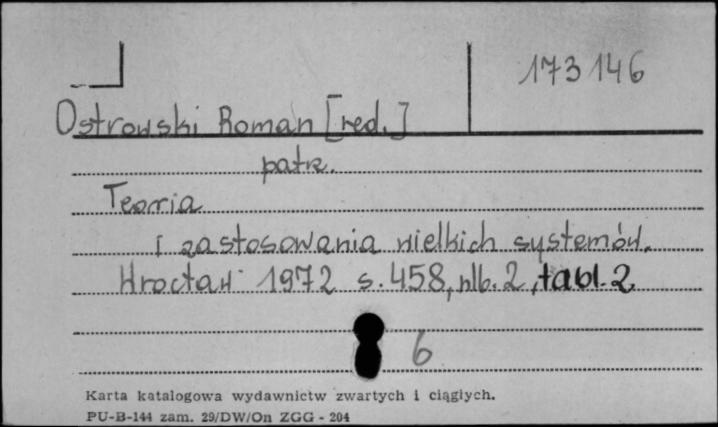 173146
Ostrowski Roman [red.]
patrz.
Teoria
i zastosowania wielkich systemów.
Wrocław 1972 s. 458, nlb. 2, tabl. 2
6
Karta katalogowa wydawnictw zwartych i ciągłych.
PU-B-144 zam. 29/DW/On ZGG - 204